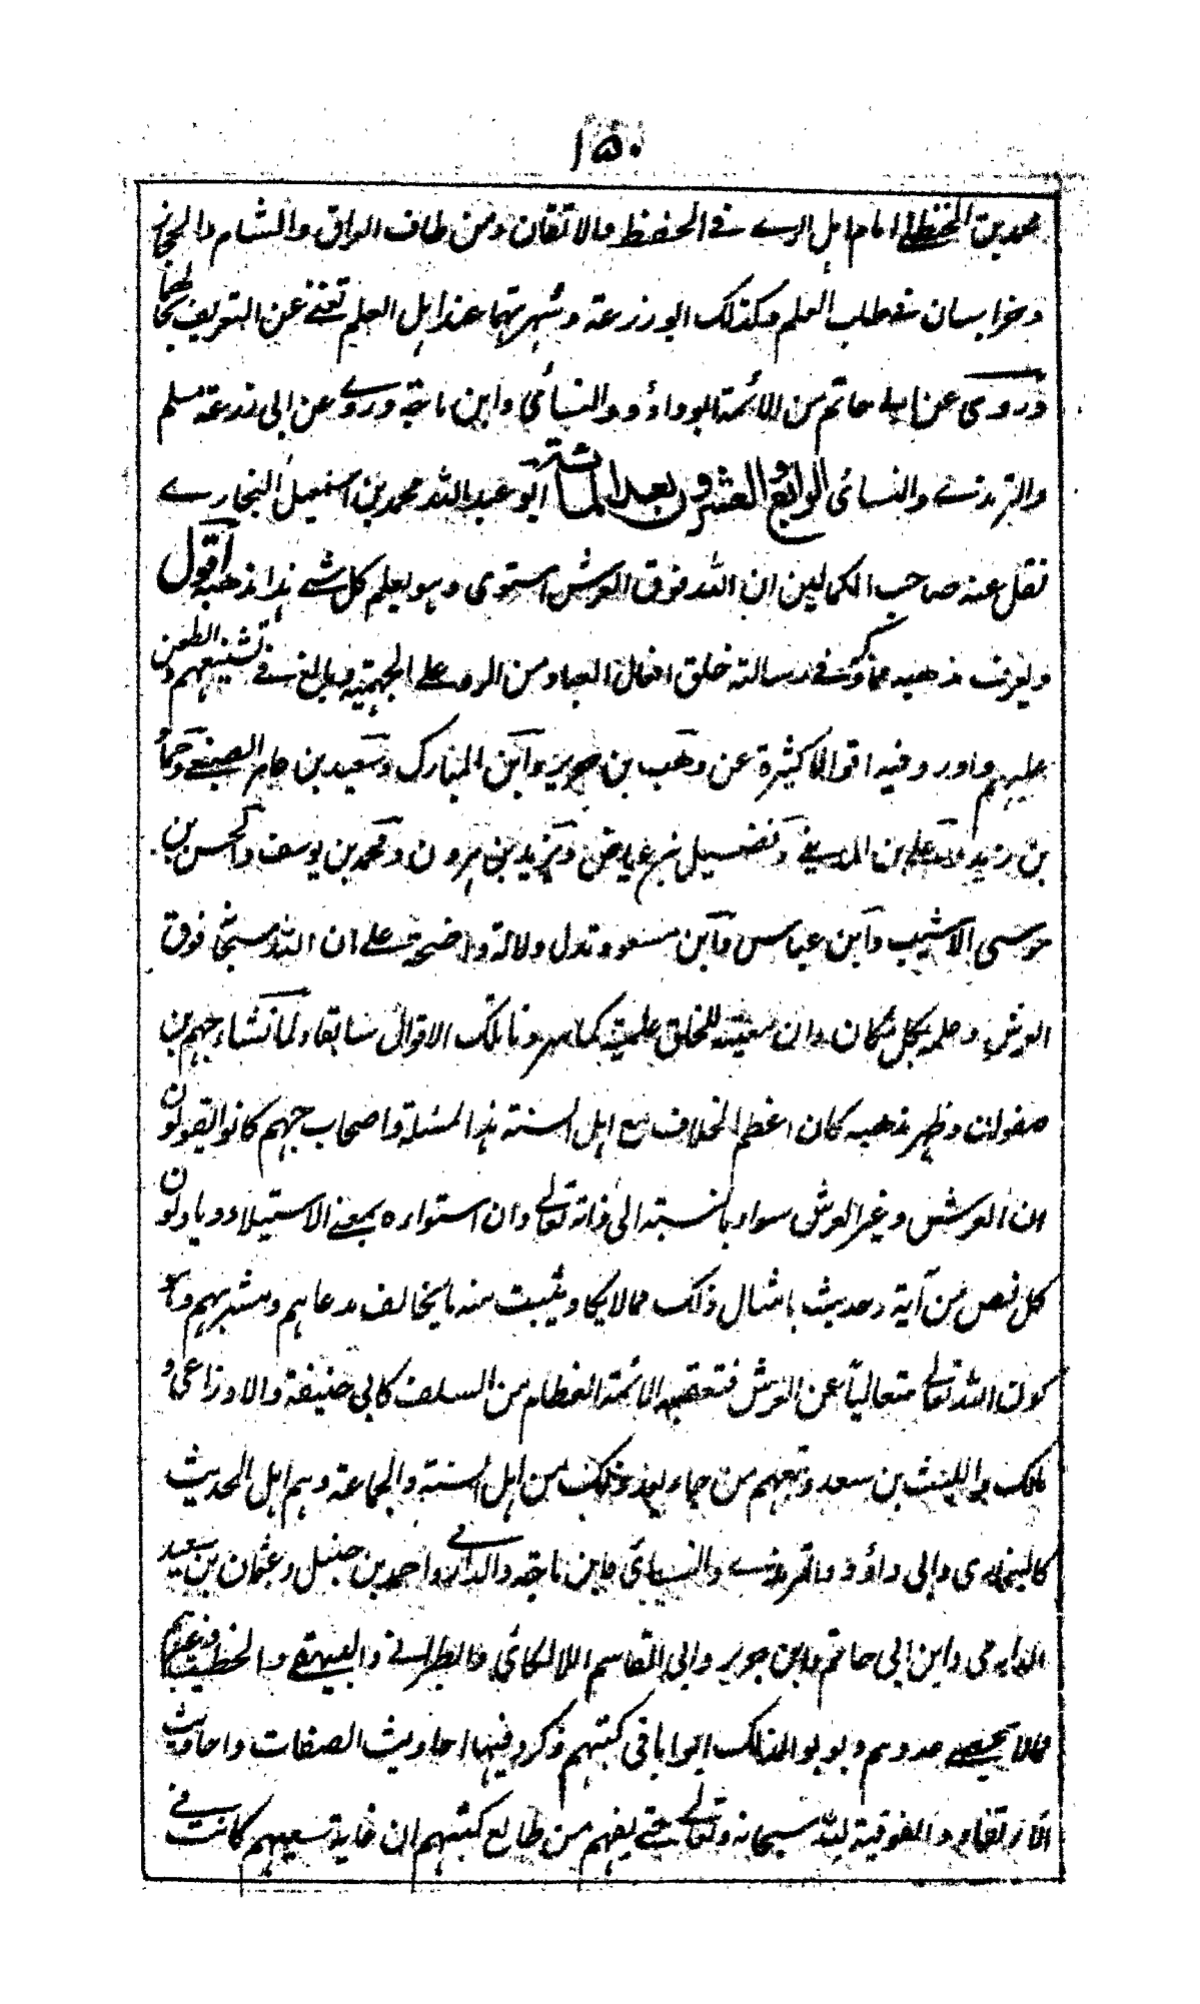 ١٥٠
محمد بن الحنظلي امام اهل الرے فے الحفظ والاتقان ومن طاف العراق والشام والحجاز
وخراسان فے طلب العلم وكذلك ابو زرعة وشهرتهما عند اهل العلم تغنے عن التعريف بحالهما
وروى عن ابے حاتم من الائمة ابو داؤد والنسائي وابن ماجة وروے عن ابى زرعة مسلم
والترمذے والنسائى الرابع والعشرون بعد المائة ابو عبد الله محمد بن اسمعيل البخارے
نقل عنه صاحب الكمالين ان الله فوق العرش استوى وهو يعلم كل شے هذا مذهبه اقول
ويعرف مذهبه مما ذكر فے رسالته خلق افعال العباد من الرد علے الجهمية وبالغ فے تشنيعهم والطعن
عليهم واورد فيه اقوالا كثيرة عن وهب بن جرير وابن المبارك وسعيد بن عامر الضبعے وحماد
بن زيد وعلے بن المدينے وفضيل بن عياض ويزيد بن هرون ومحمد بن يوسف والحسن بن
موسى الاشيب وابن عباس وابن مسعود تدل دلالة واضحة علے ان الله سبحانه فوق
العرش وعلمه بكل مكان وان معيته للخلق علمية كما سردنا تلك الاقوال سابقا ولما نشاء جهم بن
صفوان وظهر مذهبه كان اعظم الخلاف مع اهل السنة هذا المسئلة واصحاب جهم كانوا يقولون
ان العرش وغير العرش سواء بالنسبة الى ذاته تعالے وان استواءه بمعنے الاستيلاء ويأولون
كل نص من آية وحديث بامثال ذلك مما لا يجاو يثبت منه ما يخالف مدعاهم ومشربهم
كون الله تعالے متعالياً عن العرش فتعقبهم الائمة العظام من السلف كابى حنيفة والاوزاعى و
مالك والليث بن سعد وتبعهم من جاء بعد ذلك من اهل السنة والجماعة وهم اهل الحديث
كالبخارى وابى داؤد والترمذے والنسائي وابن ماجة والدارانے واحمد بن حنبل وعثمان بن سعيد
الدارمى وابن ابى حاتم وابن جرير وابى القاسم اللالكائى والطبرانے والبيهقے والخطيب وغيرهم
مما لا يحصے عددهم وبوبوا لذلك ابوابا فى كتبهم وذكروا فيها احاديث الصفات واحاديث
الارتفاع والفوقية لله سبحانه وتعالے حتے يفهم من طالع كتبهم ان غاية سعيهم كانت فے